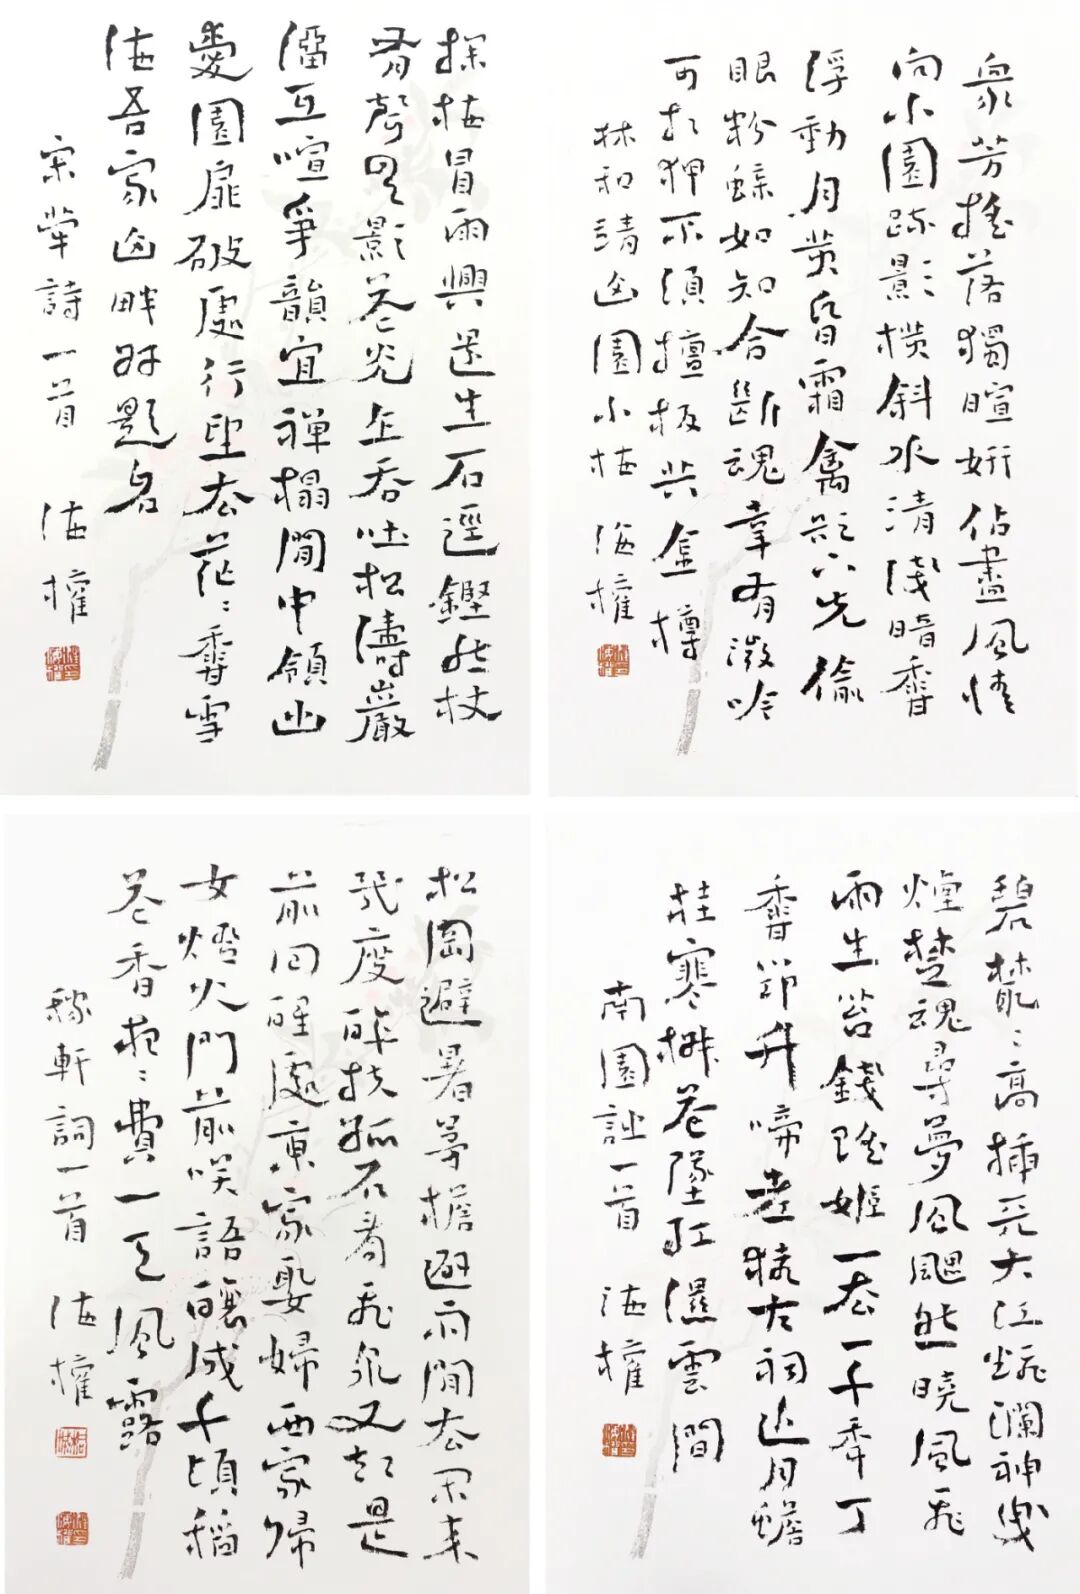 眾芳搖落獨暄妍佔盡風情
向小園疏影橫斜水清淺暗香
浮動月黃昏霜禽欲下先偷
眼粉蝶如知合斷魂幸有微吟
可相狎不須檀板共金樽
林和靖山園小梅 海權
探梅冒雨興還生石逕鏗然杖
有聲雲影花光乍吞吐松濤巖
溜互喧爭韻宜禪榻閒中領幽
愛園扉破處行望去茫〻香雪
海吾家山畔好題名
宋犖詩一首 海權
碧叢〻高插天大江翻瀾神曳
煙楚魂尋夢風颸然曉風飛
雨生苔錢瑤姬一去一千年丁
香筇竹啼老猿古祠近月蟾
桂寒椒花墜紅濕雲間
南園詩一首 海權
松岡避暑茅檐避雨閒去閒來
幾度醉扶孤石看飛泉又却是
前回醒處東家娶婦西家歸
女燈火門前笑語釀成千頃稻
花香夜〻費一天風露
稼軒詞一首 海權